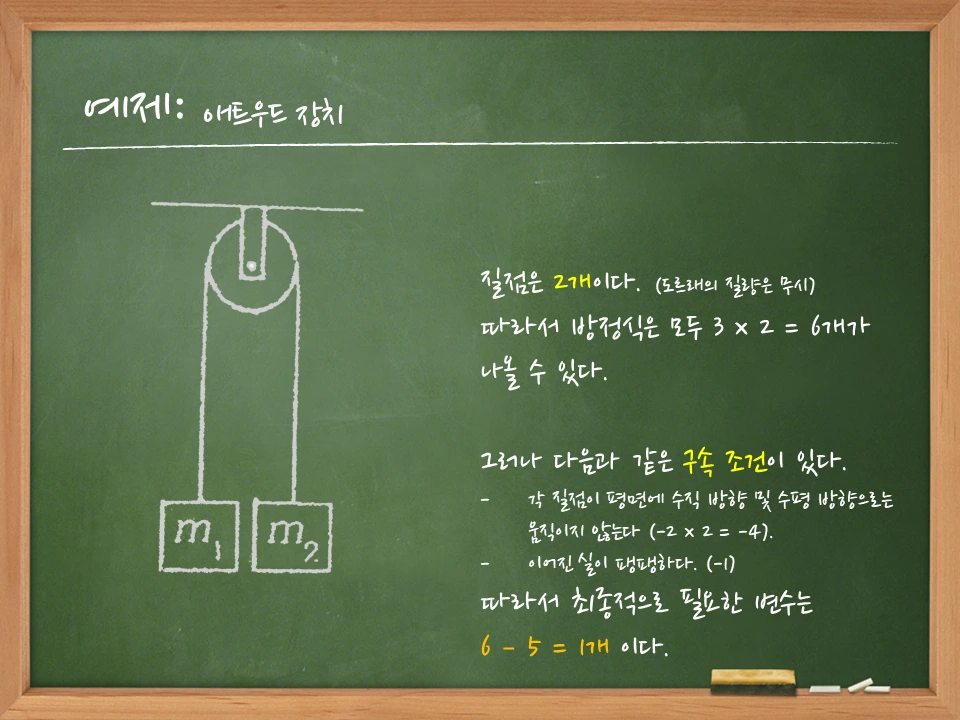 예제: 애트우드 장치
m₁
m₂
질점은 2개이다. (도르래의 질량은 무시)
따라서 방정식은 모두 3 x 2 = 6개가
나올 수 있다.
그러나 다음과 같은 구속 조건이 있다.
- 각 질점이 평면에 수직 방향 및 수평 방향으로는
움직이지 않는다 (-2 x 2 = -4).
- 이어진 실이 팽팽하다. (-1)
따라서 최종적으로 필요한 변수는
6 - 5 = 1개 이다.